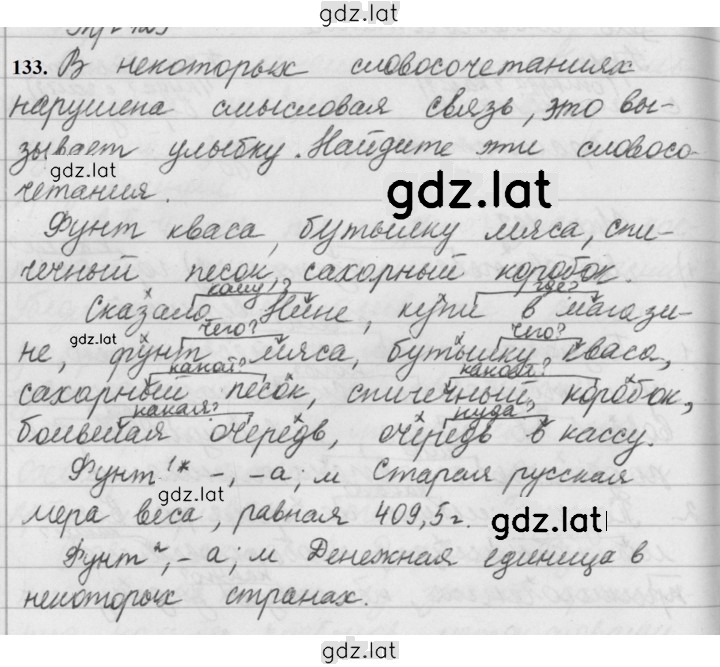 gdz.lat
133. В некоторых словосочетаниях
нарушена смысловая связь, это вы-
зывает улыбку. Найдите эти словосо-
четания.
gdz.lat
gdz.lat
Фунт кваса, бутылку мяса, спи-
чечный песок, сахарный коробок.
кому? где?
Сказала Нине, купи в магази-
gdz.lat
чего? чего?
не, фунт мяса, бутылку кваса,
какой? какой?
сахарный песок, спичечный коробок,
какая? куда?
боевитая очередь, очередь в кассу.
Фунт¹* -, -а; м Старая русская
gdz.lat
мера веса, равная 409,5 г.
gdz.lat
Фунт², -а; м Денежная единица в
некоторых странах.
gdz.lat